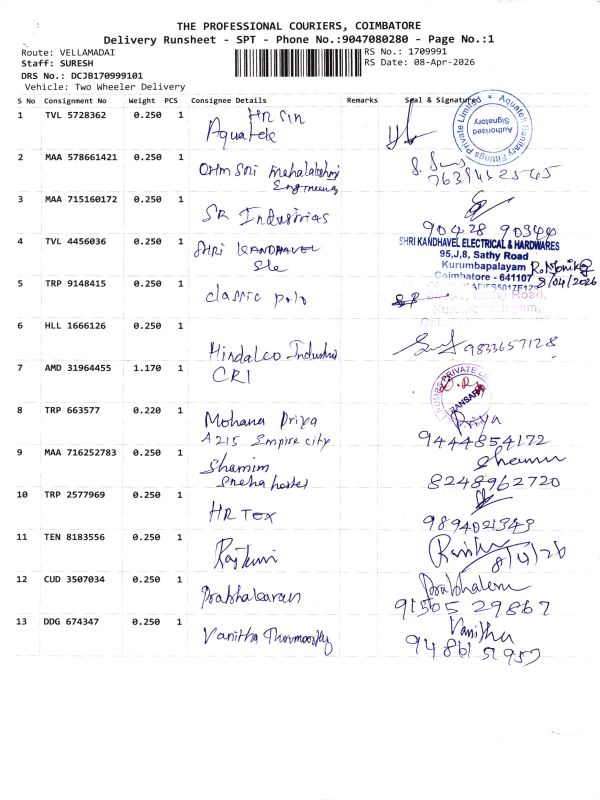 THE PROFESSIONAL COURIERS, COIMBATORE
Delivery Runsheet - SPT - Phone No.:9047080280 - Page No.:1
Route: VELLAMADAI RS No.: 1709991
Staff: SURESH RS Date: 08-Apr-2026
DRS No.: DCJB170999101
Vehicle: Two Wheeler Delivery
S No Consignment No Weight PCS Consignee Details Remarks Seal & Signature
1 TVL 5728362 0.250 1 Aquatek
Aquatek Sanitary Fittings Private Limited
Authorised Signatory
2 MAA 578661421 0.250 1 Ohm Sri Mahalakshmi
Engineering
3 MAA 715160172 0.250 1 SR Industrias
90428 90344
4 TVL 4456036 0.250 1 SHRI KANDHAVEL
SHRI KANDHAVEL ELECTRICAL & HARDWARES
95,J,8, Sathy Road
Kurumbapalayam R.Monika
Coimbatore - 641107 8/04/2026
5 TRP 9148415 0.250 1 classic polo
Sathy Road,
6 HLL 1666126 0.250 1
Hindalco Industris 9833657128
7 AMD 31964455 1.170 1 CRI
PRIVATE
8 TRP 663577 0.220 1 Mohana Priya Priya
A215 Empire city 9444854172
9 MAA 716252783 0.250 1 Shamim
Sneha hostel 8248962720
10 TRP 2577969 0.250 1 HR Tex
9894021343
11 TEN 8183556 0.250 1 8/4/26
12 CUD 3507034 0.250 1 Prabhakaran
91505 29867
13 DDG 674347 0.250 1 Vanitha Vanitha